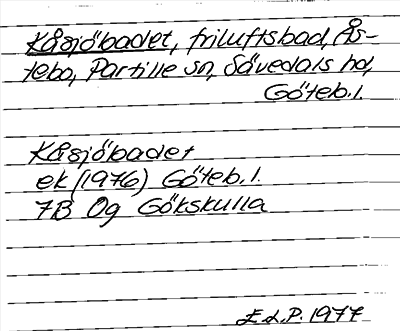 Kåsjöbadet, friluftsbad, Ås-
tebo, Partille sn, Sävedals hd,
Göteb. l.
Kåsjöbadet
ek (1976) Göteb. l.
7B Og Gökskulla
E.L.P. 1977